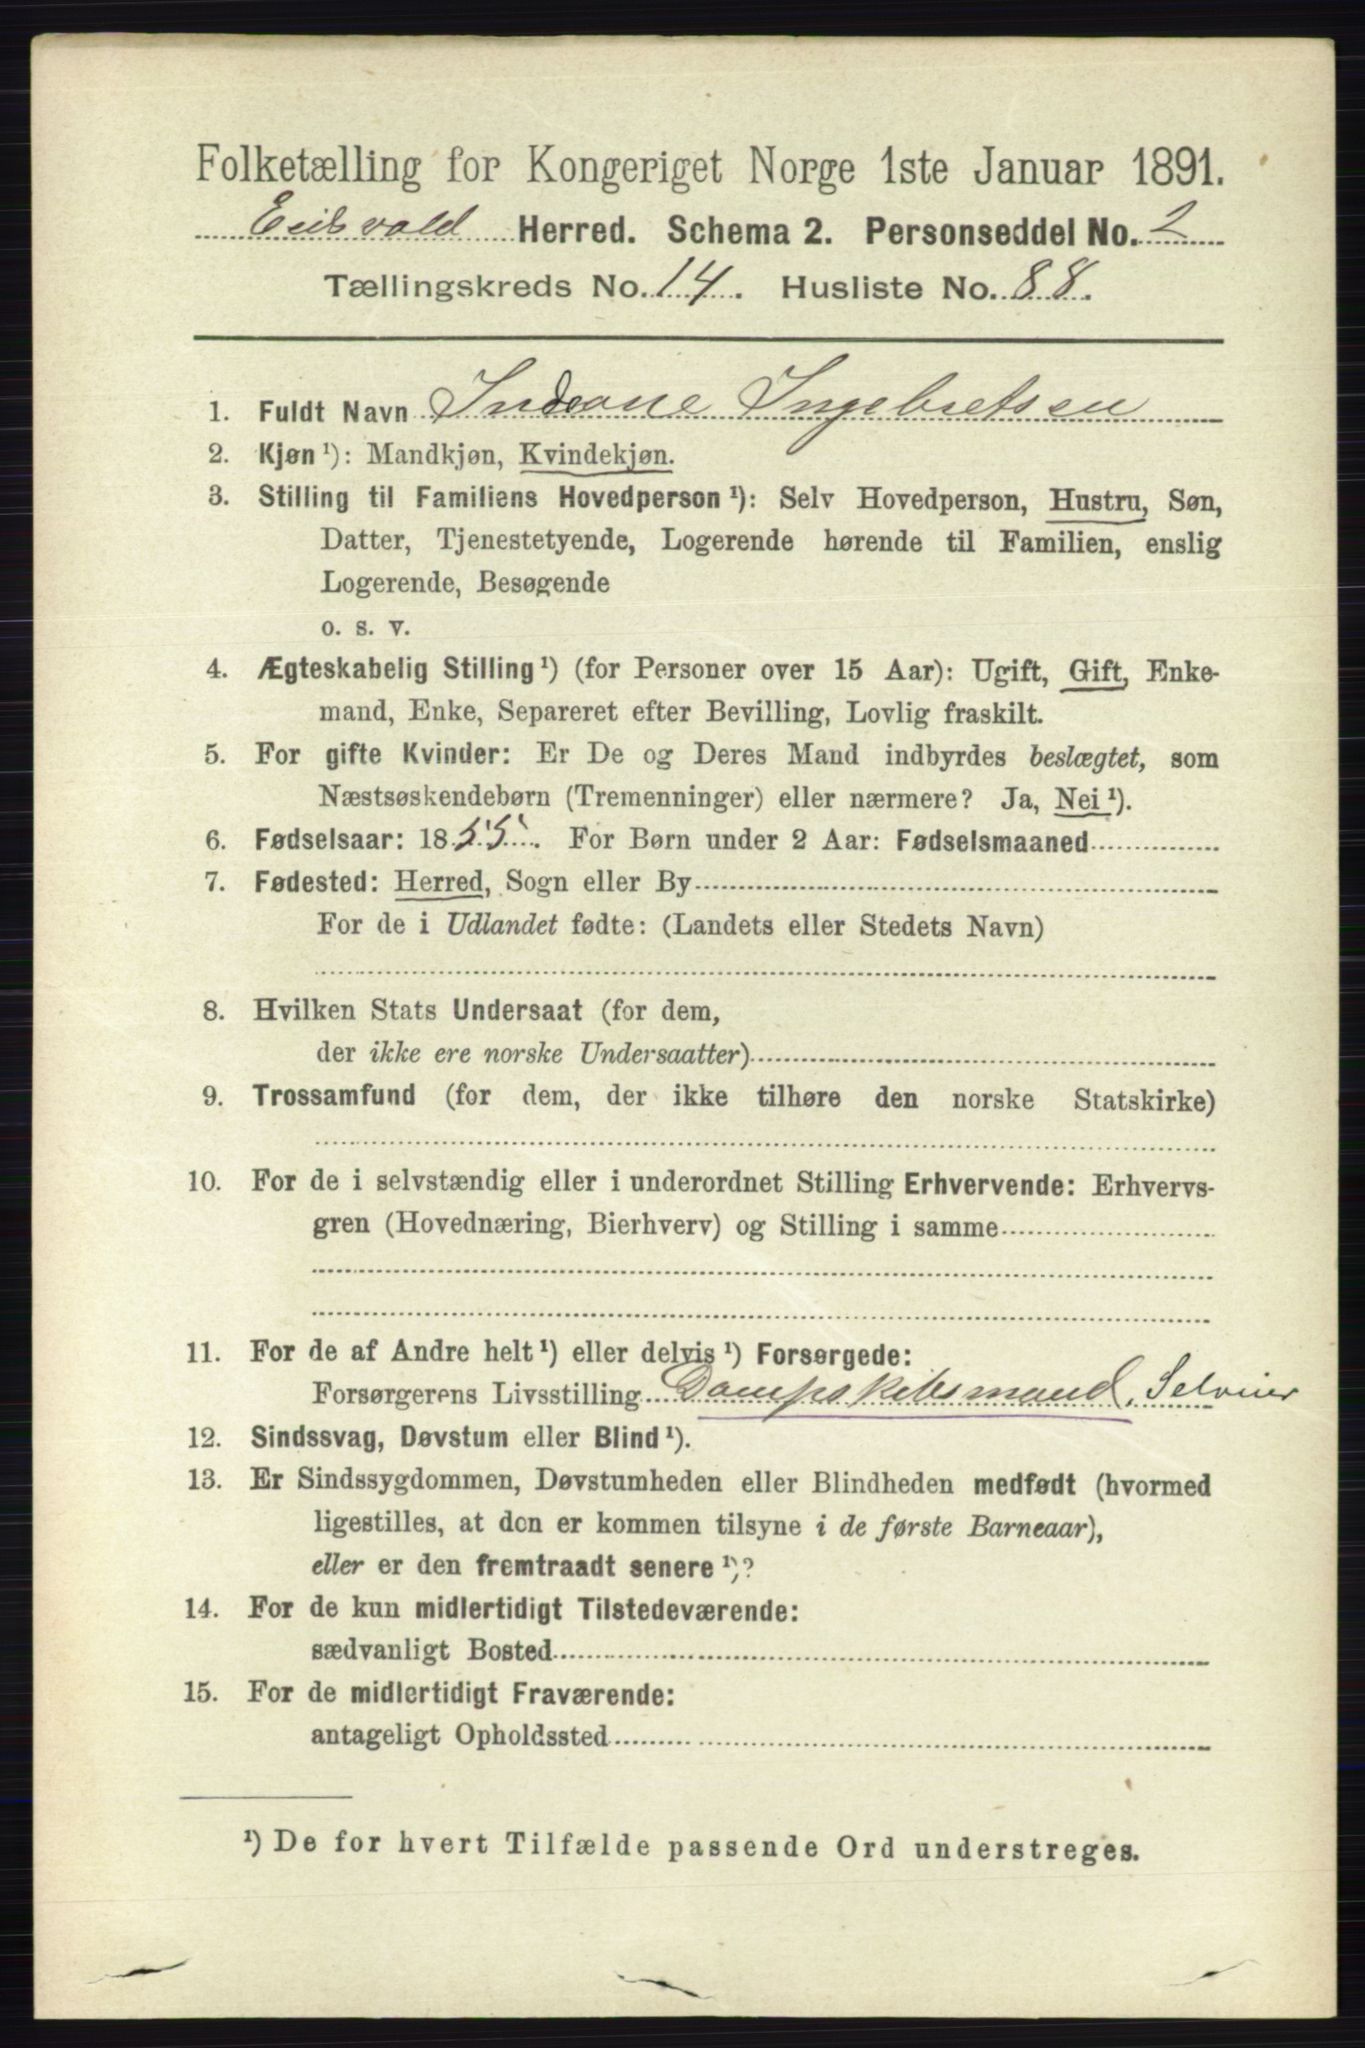 Folketælling for Kongeriget Norge 1ste Januar 1891.
Eidsvold Herred. Schema 2. Personseddel No. 2
Tællingskreds No. 14. Husliste No. 88.
1. Fuldt Navn Indeane Ingebretsen
2. Kjøn ¹): Mandkjøn, Kvindekjøn.
3. Stilling til Familiens Hovedperson ¹): Selv Hovedperson, Hustru, Søn,
Datter, Tjenestetyende, Logerende hørende til Familien, enslig
Logerende, Besøgende
o. s. v.
4. Ægteskabelig Stilling ¹) (for Personer over 15 Aar): Ugift, Gift, Enke-
mand, Enke, Separeret efter Bevilling, Lovlig fraskilt.
5. For gifte Kvinder: Er De og Deres Mand indbyrdes beslægtet, som
Næstsøskendebørn (Tremenninger) eller nærmere? Ja, Nei ¹).
6. Fødselsaar: 1855. For Børn under 2 Aar: Fødselsmaaned
7. Fødested: Herred, Sogn eller By
For de i Udlandet fødte: (Landets eller Stedets Navn)
8. Hvilken Stats Undersaat (for dem,
der ikke ere norske Undersaatter)
9. Trossamfund (for dem, der ikke tilhøre den norske Statskirke)
10. For de i selvstændig eller i underordnet Stilling Erhvervende: Erhvervs-
gren (Hovednæring, Bierhverv) og Stilling i samme
11. For de af Andre helt ¹) eller delvis ¹) Forsørgede:
Forsørgerens Livsstilling Dampskibsmand, Selveier
12. Sindssvag, Døvstum eller Blind ¹).
13. Er Sindssygdommen, Døvstumheden eller Blindheden medfødt (hvormed
ligestilles, at den er kommen tilsyne i de første Barneaar),
eller er den fremtraadt senere ¹)?
14. For de kun midlertidigt Tilstedeværende:
sædvanligt Bosted
15. For de midlertidigt Fraværende:
antageligt Opholdssted
¹) De for hvert Tilfælde passende Ord understreges.